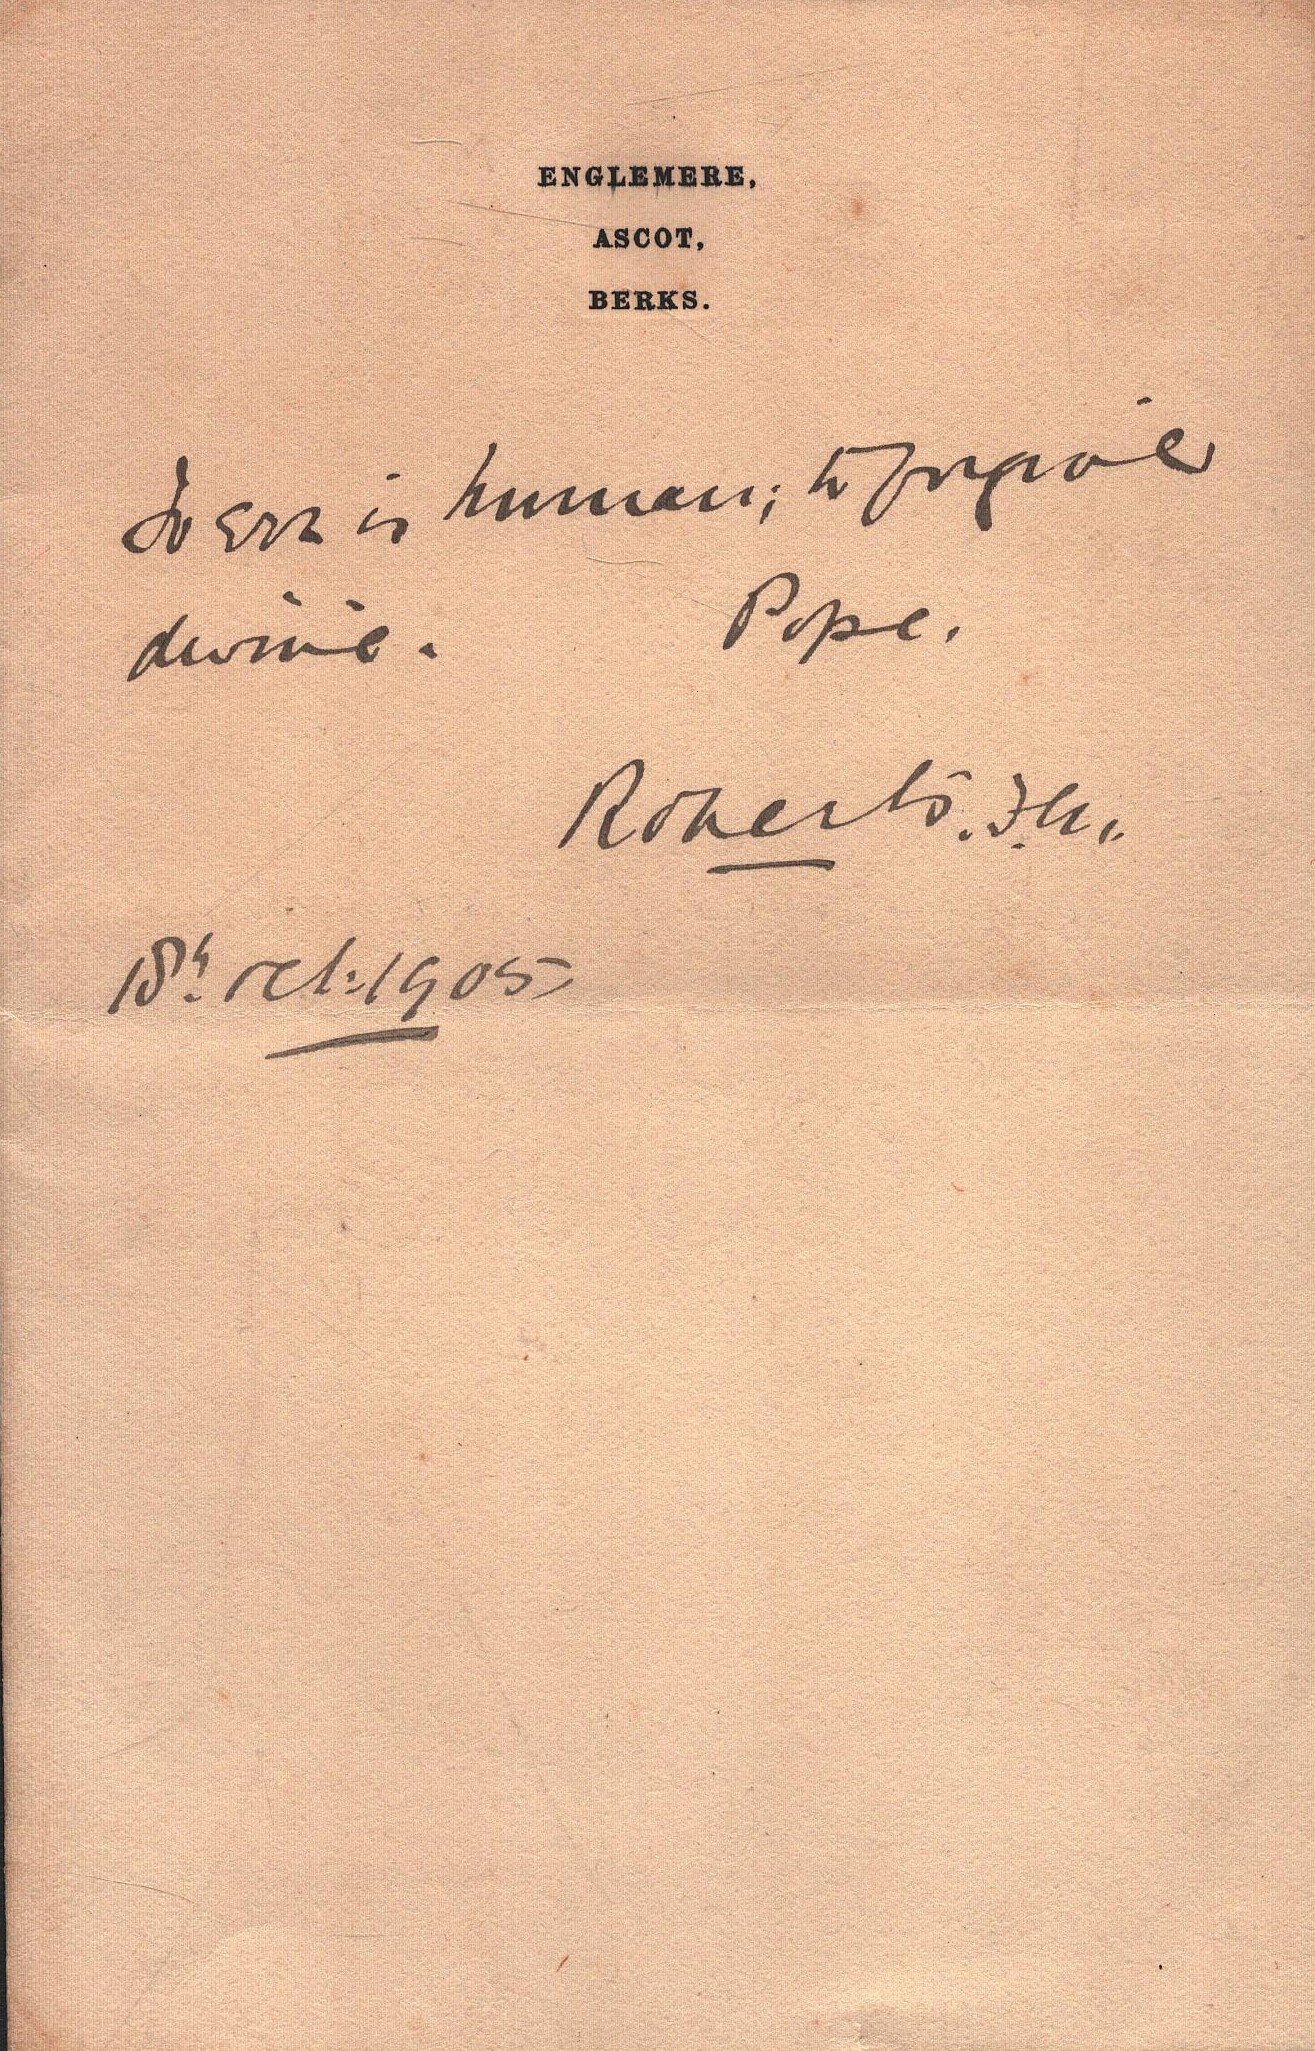 ENGLEMERE,
ASCOT,
BERKS.
To err is human; to forgive
divine. Pope.
Roberts. F.M.
18th Oct: 1905